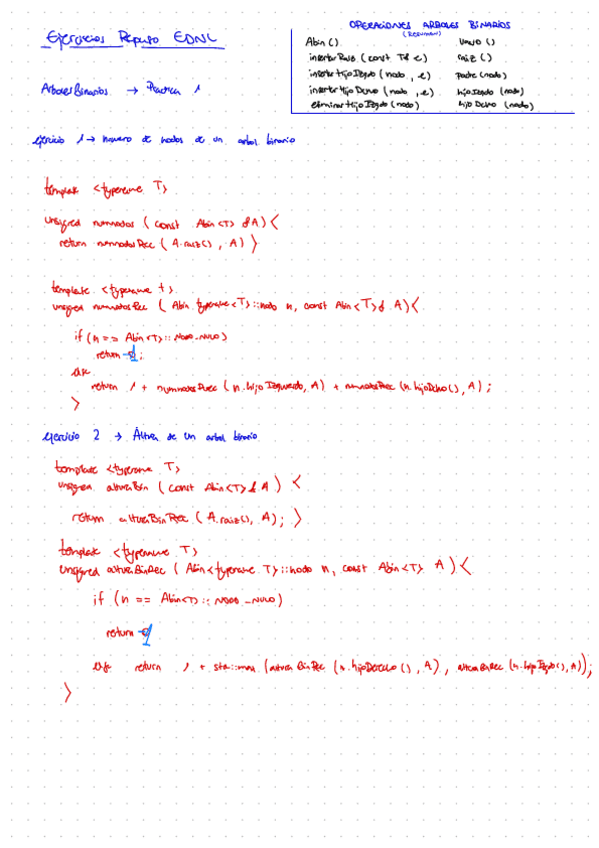 Ejercicios Repaso EDNL
OPERACIONES ARBOLES BINARIOS
(RESUMEN)
Abin ()
vacio ()
insertarRaiz (const T& e)
raiz ()
insertarHijoIzqdo (nodo, e)
Padre (nodo)
insertarHijoDrcho (nodo, e)
hijoIzqdo (nodo)
eliminarHijoIzqdo (nodo)
hijo Drcho (nodo)
Arboles Binarios → Practica 1
ejercicio 1 → Numero de nodos de un arbol binario
template <typename T>
unsigned numnodos (const Abin<T> &A) {
return numnodosRec (A.raiz(), A) }
template <typename t>
unsigned numnodosRec (Abin typename<T>::nodo n, const Abin<T>& A) {
if (n == Abin<T>::NODO_NULO)
return
else
return 1 + numnodosRec (n.hijoIzquierdo, A) + numnodosRec (n.hijoDrcho(), A);
}
ejercicio 2 → Altura de un arbol binario
template <typename T>
unsigned alturaBin (const Abin<T> & A) {
return alturaBinRec (A.raiz(), A); }
template <typename T>
unsigned alturaBinRec (Abin<typename T>::nodo n, const Abin<T> A) {
if (n == Abin<T>::NODO_NULO)
return
else return 1 + std::max (alturaBinRec (n.hijoDerecho(), A), alturaBinRec (n.hijoIzqdo(), A));
}